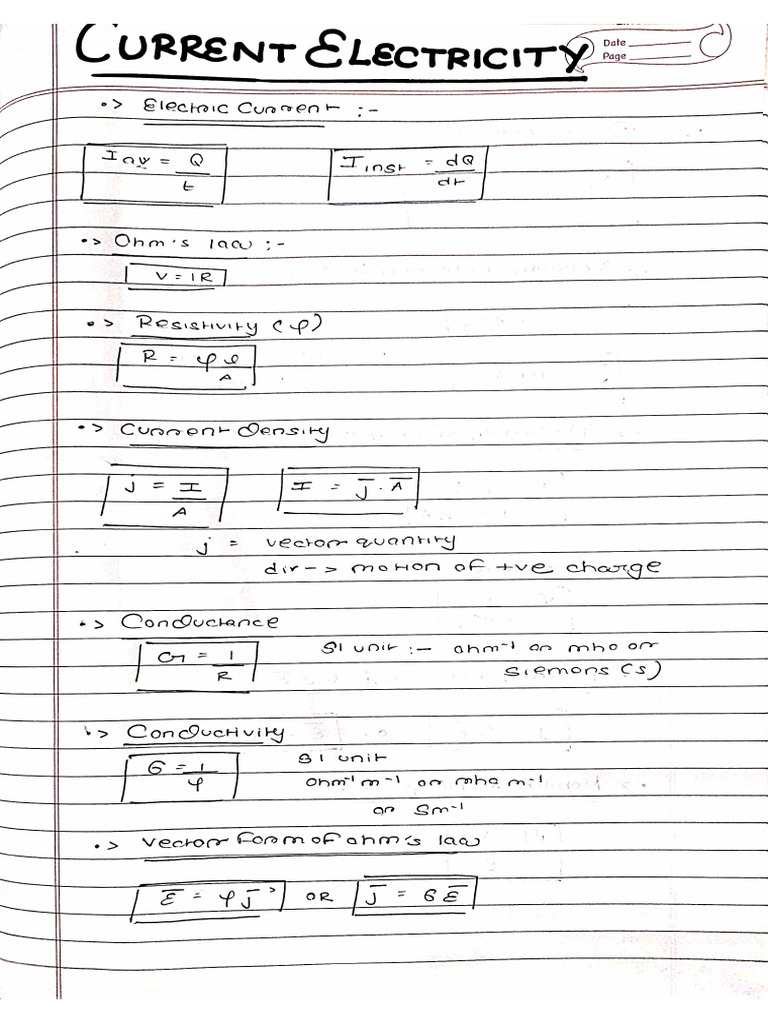 CURRENT ELECTRICITY
Date
Page
•> Electric Current :-
I av = Q/t    I inst = dQ/dt
•> Ohm's law :-
V = IR
•> Resistivity (φ)
R = φ l/A
•> Current Density
j = I/A    I = j̅ . A̅
j = vector quantity
dir -> motion of +ve charge
•> Conductance
G = 1/R    SI unit :- ohm⁻¹ or mho or
siemens (s)
•> Conductivity
σ = 1/φ    SI unit
ohm⁻¹ m⁻¹ or mho m⁻¹
or Sm⁻¹
•> Vector form of ohm's law
E̅ = φ j̅    OR    j̅ = σ E̅